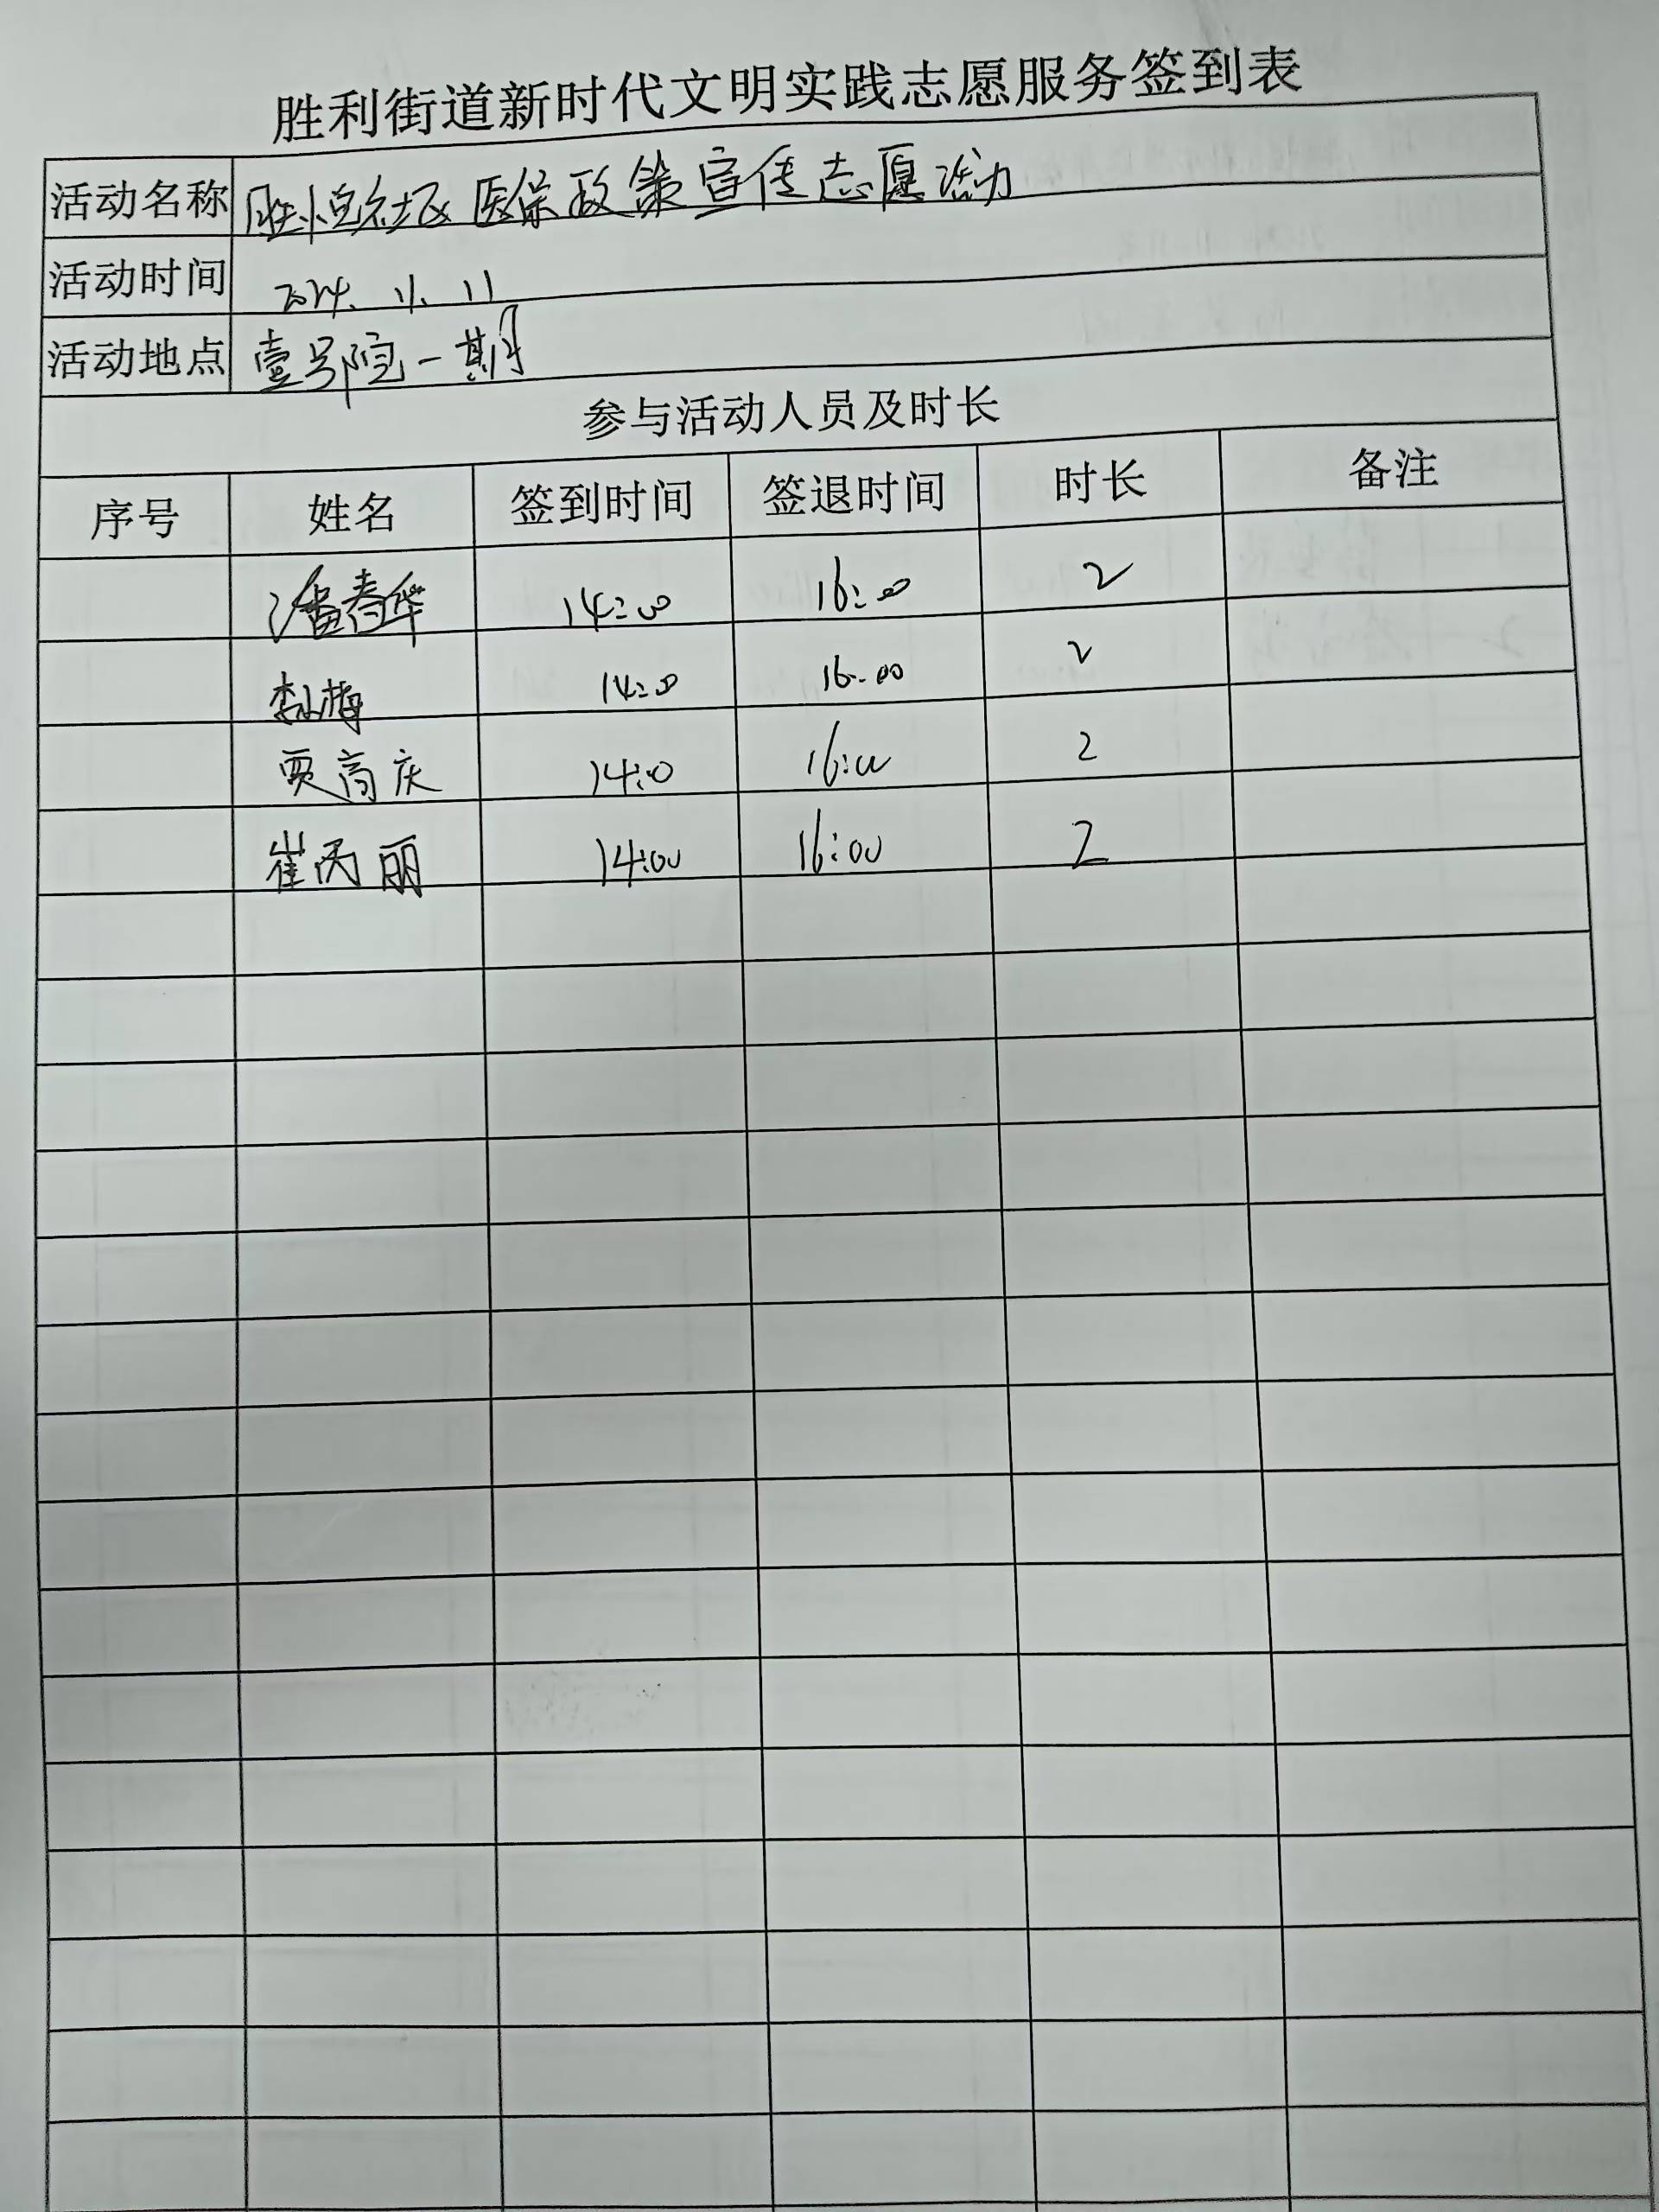 胜利街道新时代文明实践志愿服务签到表
活动名称 胜恒社区医保政策宣传志愿活动
活动时间 2024.11.11
活动地点 壹号院一期
参与活动人员及时长
序号 姓名 签到时间 签退时间 时长 备注
潘春华 14:00 16:00 2
李小梅 14:00 16:00 2
贾高庆 14:00 16:00 2
崔丙丽 14:00 16:00 2